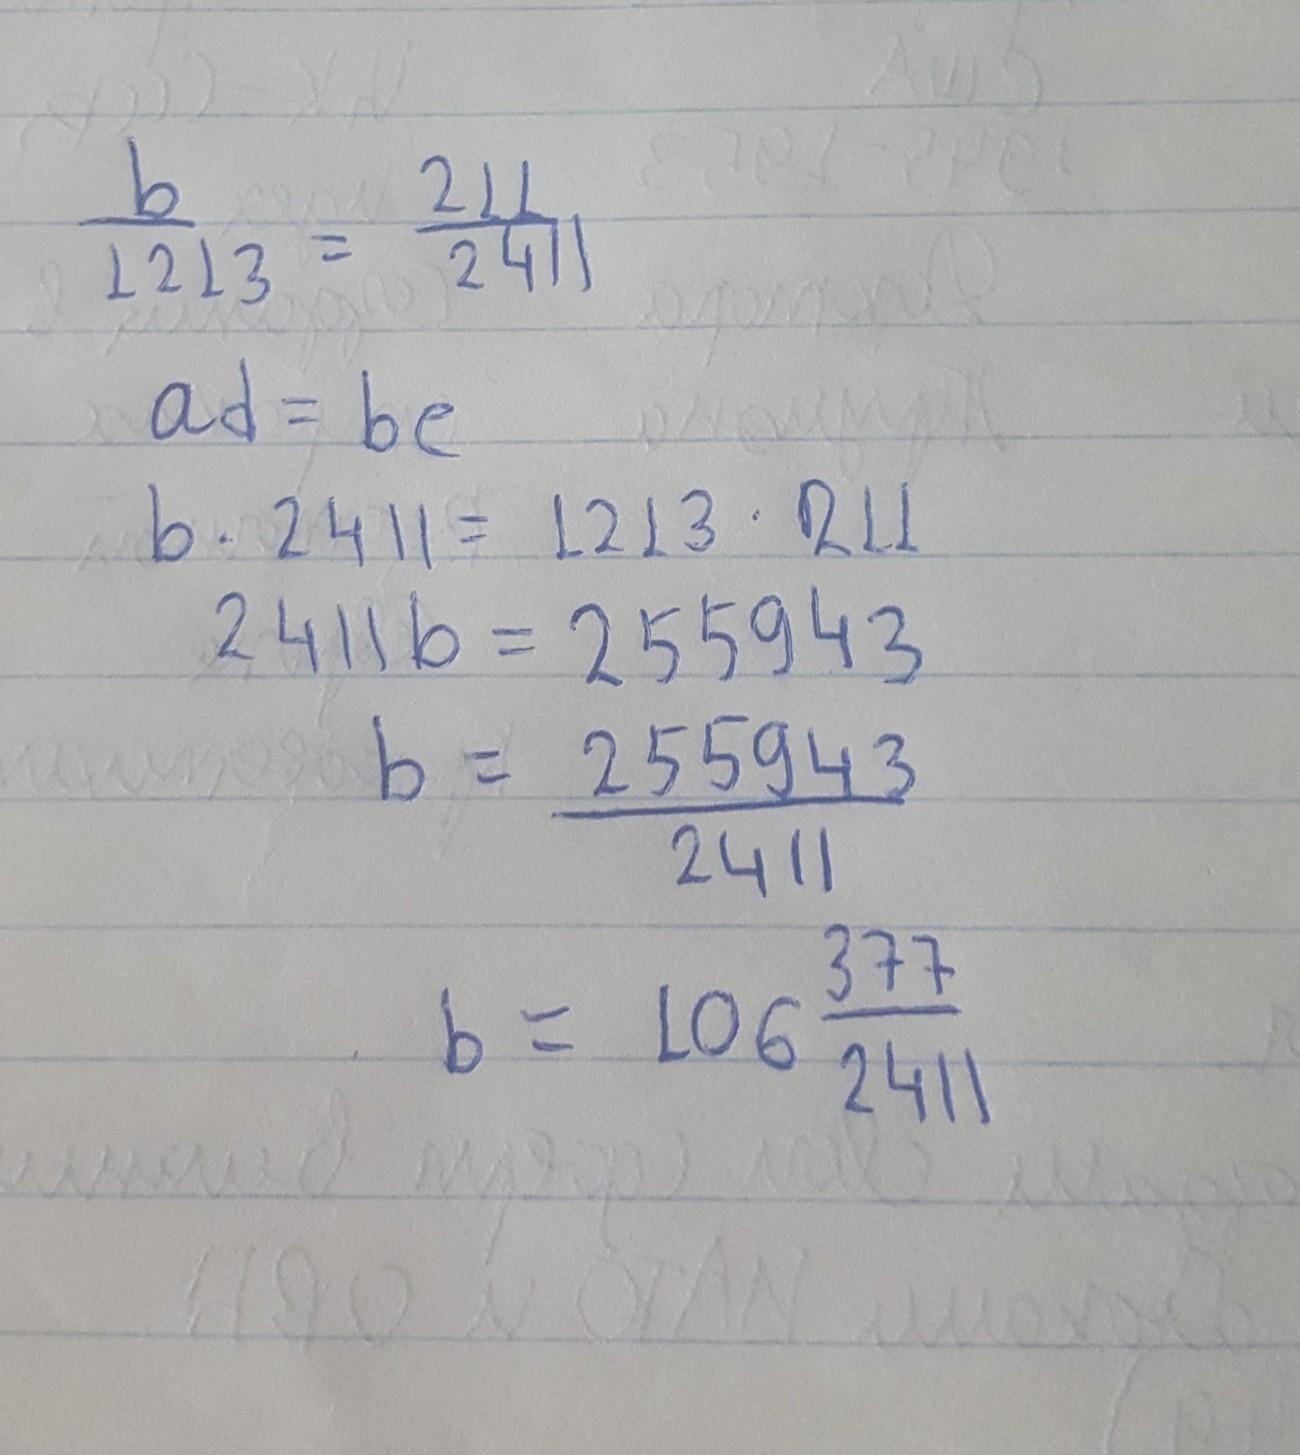 b/1213 = 211/2411
ad = bc
b · 2411 = 1213 · 211
2411b = 255943
b = 255943/2411
b = 106 377/2411